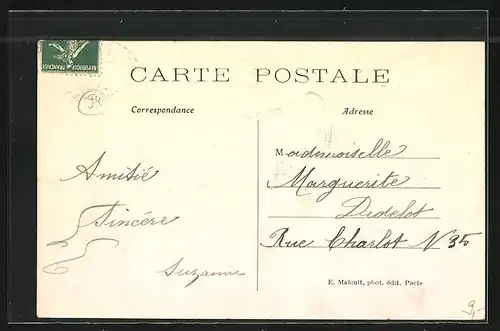 REPUBLIQUE FRANÇAISE
CARTE POSTALE
94
Correspondance
Amitié
Sincére
Suzanne
Adresse
Mademoiselle
Marguerite
Didelot
Rue Charlot N 35
E. Malcuit, phot. édit. Paris
9,-